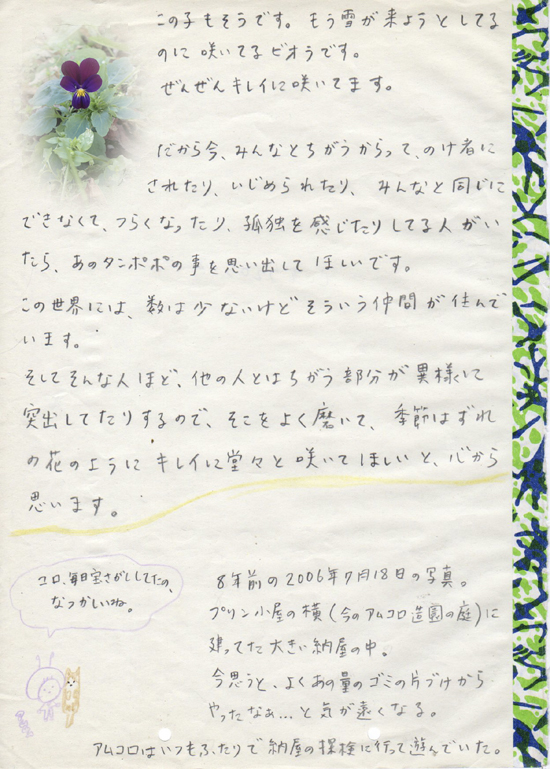 この子もそうです。もう雪が来ようとしてる
のに咲いてるビオラです。
ぜんぜんキレイに咲いてます。
だから今、みんなとちがうからって、のけ者に
されたり、いじめられたり、みんなと同じに
できなくて、つらくなったり、孤独を感じたりしてる人がい
たら、あのタンポポの事を思い出してほしいです。
この世界には、数は少ないけどそういう仲間が住んで
います。
そしてそんな人ほど、他の人とはちがう部分が異様に
突出してたりするので、そこをよく磨いて、季節はずれ
の花のようにキレイに堂々と咲いてほしいと、心から
思います。
コロ、毎日宝さがししてたの、
なつかしいね。
8年前の2006年7月18日の写真。
プリン小屋の横(今のアムコロ造園の庭)に
建ってた大きい納屋の中。
今思うと、よくあの量のゴミの片づけから
やったなぁ…と気が遠くなる。
アムコロはいつもふたりで納屋の探検に行って遊んでいた。